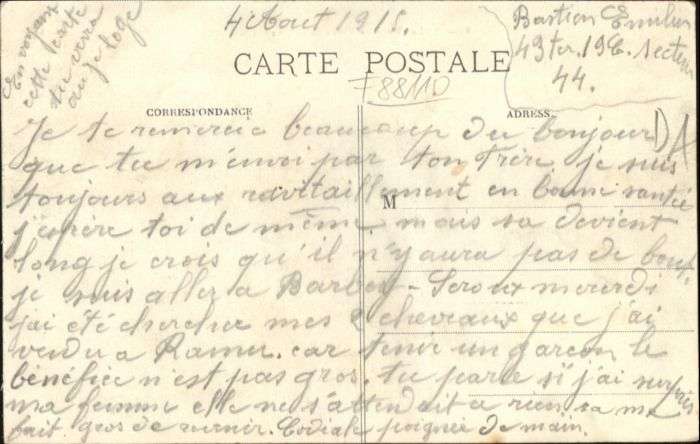 En voyant
cette carte
tu verra
ou je loge
4 Aout 1915.
Bastien Emilien
43 ter. 19E. secteur
44.
CARTE POSTALE
F88110
CORRESPONDANCE
ADRESSE
DA
M
Je te remercie beaucoup du bonjour
que tu m'envoi par ton frère je suis
toujours aux ravitaillement en bonne santée
j'espère toi de même mais sa devient
long je crois qu'il n'yaura pas de bout.
je suis aller a Barbey-Seroux mercredi
j'ai été chercher mes 2 chevaux que j'ai
vendu a car tenir un garçon le
bénéfice n'est pas gros. tu parle si j'ai surpris
ma femme elle ne s'attendait a rien sa me
fait gros de revenir. Cordiale poignée de main.